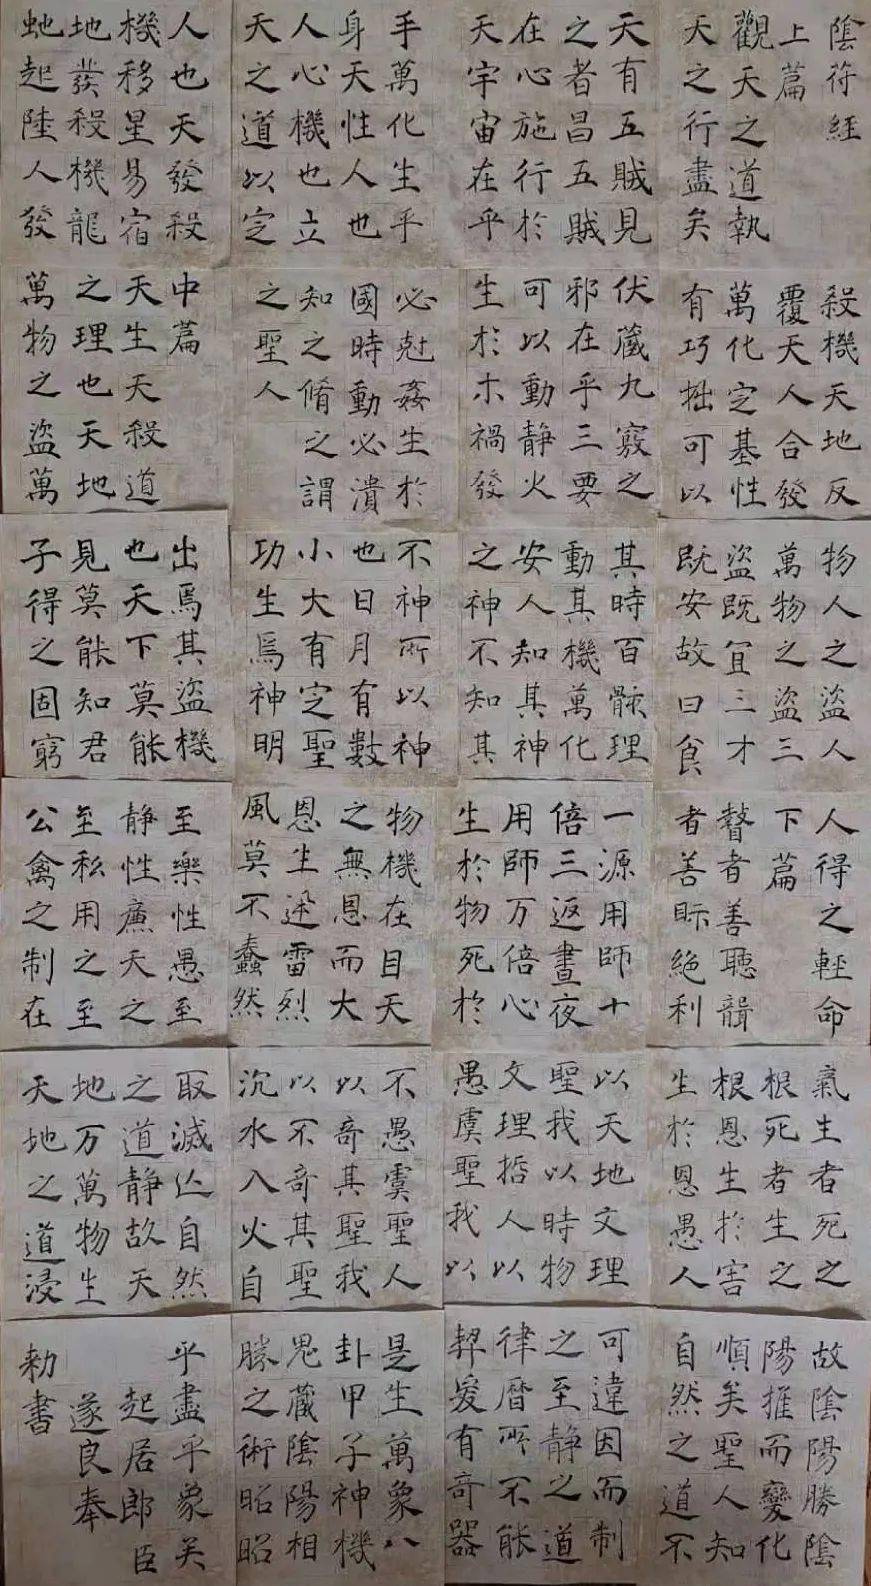 陰符經
上篇
觀天之道執
天之行盡矣
天有五賊見
之者昌五賊
在心施行於
天宇宙在乎
手萬化生乎
身天性人也
人心機也立
天之道以定
人也天發殺
機移星易宿
地發殺機龍
虵起陸人發
殺機天地反
覆天人合發
萬化定基性
有巧拙可以
伏藏九竅之
邪在乎三要
可以動靜火
生於木禍發
必尅姦生於
國時動必潰
知之脩之謂
之聖人
中篇
天生天殺道
之理也天地
萬物之盜萬
物人之盜人
萬物之盜三
盜既宜三才
既安故曰食
其時百骸理
動其機萬化
安人知其神
之神不知其
不神所以神
也日月有數
小大有定聖
功生焉神明
出焉其盜機
也天下莫能
見莫能知君
子得之固窮
人得之輕命
下篇
瞽者善聽聾
者善眎絕利
一源用師十
倍三返晝夜
用師万倍心
生於物死於
物機在目天
之無恩而大
恩生迅雷烈
風莫不蠢然
至樂性愚至
靜性廉天之
至私用之至
公禽之制在
氣生者死之
根死者生之
根恩生於害
生於恩愚人
以天地文理
聖我以時物
文理哲人以
愚虞聖我以
不愚虞聖人
以奇其聖我
以不奇其聖
沉水入火自
取滅亾自然
之道靜故天
地万萬物生
天地之道浸
故陰陽勝陰
陽推而變化
順矣聖人知
自然之道不
可違因而制
之至靜之道
律曆所不能
契爰有奇器
是生萬象八
卦甲子神機
鬼藏陰陽相
勝之術昭昭
乎盡乎象矣
起居郎臣
遂良奉
勑書